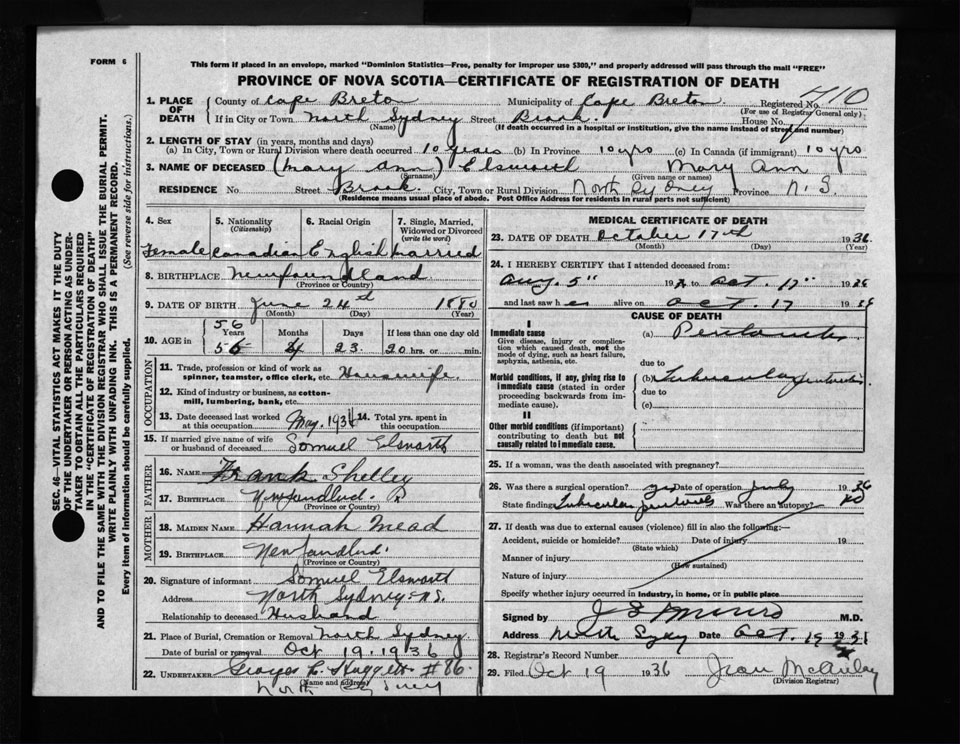 FORM 6
This form if placed in an envelope, marked "Dominion Statistics—Free, penalty for improper use $300," and properly addressed will pass through the mail "FREE"
PROVINCE OF NOVA SCOTIA—CERTIFICATE OF REGISTRATION OF DEATH
SEC. 46—VITAL STATISTICS ACT MAKES IT THE DUTY
OF THE UNDERTAKER OR PERSON ACTING AS UNDER-
TAKER TO OBTAIN ALL THE PARTICULARS REQUIRED
IN THE "CERTIFICATE OF REGISTRATION OF DEATH"
AND TO FILE THE SAME WITH THE DIVISION REGISTRAR WHO SHALL ISSUE THE BURIAL PERMIT.
WRITE PLAINLY WITH UNFADING INK. THIS IS A PERMANENT RECORD.
Every item of information should be carefully supplied. (See reverse side for instructions.)
1. PLACE OF DEATH County of Cape Breton Municipality of Cape Breton Registered No. 410
(For use of Registrar General only)
If in City or Town North Sydney Street Brook House No.
(Name) (If death occurred in a hospital or institution, give the name instead of street and number)
2. LENGTH OF STAY (in years, months and days)
(a) In City, Town or Rural Division where death occurred 10 years (b) In Province 10 yrs (c) In Canada (if immigrant) 10 yrs
3. NAME OF DECEASED (Mary Ann) Elsworth Mary Ann
(Surname) (Given name or names)
RESIDENCE No Street Brook City, Town or Rural Division North Sydney Province N. S.
(Residence means usual place of abode. Post Office Address for residents in rural parts not sufficient)
4. Sex 5. Nationality (Citizenship) 6. Racial Origin 7. Single, Married, Widowed or Divorced (write the word)
Female Canadian English Married
8. BIRTHPLACE Newfoundland
(Province or County)
9. DATE OF BIRTH June 24th 1880
(Month) (Day) (Year)
10. AGE in 56 Years Months Days If less than one day old
23 20 hrs. or min.
OCCUPATION
11. Trade, profession or kind of work as spinner, teamster, office clerk, etc. Housewife
12. Kind of industry or business, as cotton-mill, lumbering, bank, etc.
13. Date deceased last worked at this occupation May, 1936 14. Total yrs. spent in this occupation
15. If married give name of wife or husband of deceased Samuel Elsworth
FATHER
16. NAME Frank Shelley
17. BIRTHPLACE Newfoundlnd.
(Province or Country)
MOTHER
18. MAIDEN NAME Hannah Mead
19. BIRTHPLACE Newfoundlnd.
(Province or Country)
20. Signature of informant Samuel Elsworth
Address North Sydney N.S.
Relationship to deceased Husband
21. Place of Burial, Cremation or Removal North Sydney
Date of burial or removal Oct 19, 1936
22. UNDERTAKER Huggett #86
(Name and address)
North Sydney
MEDICAL CERTIFICATE OF DEATH
23. DATE OF DEATH October 17th 1936
(Month) (Day) (Year)
24. I HEREBY CERTIFY that I attended deceased from:
Aug. 5" 19 to Oct. 17" 19
and last saw her alive on Oct. 17 19
CAUSE OF DEATH
I
Immediate cause
Give disease, injury or complication which caused death, not the mode of dying, such as heart failure, asphyxia, asthenia, etc.
(a)
due to
Morbid conditions, if any, giving rise to immediate cause (stated in order proceeding backwards from immediate cause).
(b) Tubercular peritonitis
due to
(c)
II
Other morbid conditions (if important) contributing to death but not causally related to immediate cause.
25. If a woman, was the death associated with pregnancy?
26. Was there a surgical operation? yes Date of operation July 1936
State finding Tubercular peritonitis Was there an autopsy? no
27. If death was due to external causes (violence) fill in also the following:—
Accident, suicide or homicide? Date of injury 19
(State which)
Manner of injury
(How sustained)
Nature of injury
Specify whether injury occurred in industry, in home, or in public place
Signed by Munro M.D.
Address North Date Oct. 19 193
28. Registrar's Record Number
29. Filed Oct 19 1936 Jean McAulay
(Division Registrar)